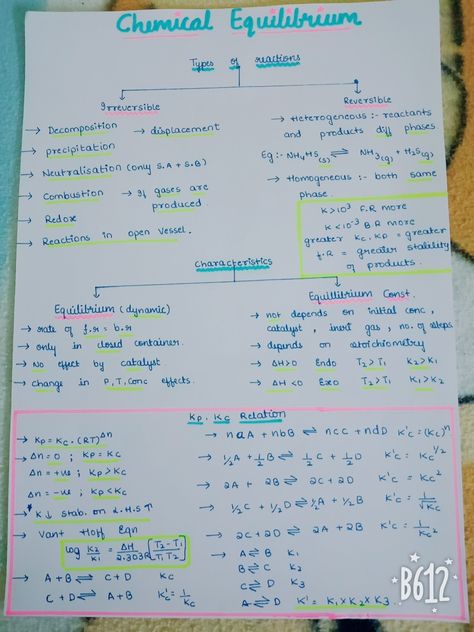 Chemical Equilibrium
Types of reactions
Irreversible
→ Decomposition → displacement
→ precipitation
→ Neutralisation (only S.A + S.B)
→ Combustion → If gases are produced.
→ Redox
→ Reactions in open Vessel.
Reversible
→ Heterogeneous :- reactants
and products diff phases
Eg :- NH4HS(s) ⇌ NH3(g) + H2S(g)
→ Homogeneous :- both same
phase.
K>10³ F.R more
K<10⁻³ B.R more
greater Kc, KP = greater
f.R = greater stability
of products.
Characteristics
Equilibrium (dynamic)
→ rate of f.r = b.r
→ only in closed container.
→ No effect by catalyst
→ change in P,T, Conc effects.
Equillibrium Const.
→ not depends on initial conc,
catalyst, inert gas, no. of steps
→ depends on stoichiometry
→ ΔH>0 Endo T2>T1 K2>K1
→ ΔH<0 Exo T2>T1 K1>K2
Kp, Kc Relation
→ KP = KC . (RT)^Δn
→ Δn = 0 ; KP = KC
Δn = +ve ; KP>KC
Δn = -ve ; KP<KC
→ K↓ stab. on R.H.S ↑
→ Vant Hoff Eqn
log K2/K1 = ΔH/2.303R [T2-T1/T1T2]
→ A+B ⇌ C+D KC
C+D ⇌ A+B K'c = 1/Kc
→ naA + nbB ⇌ ncC + ndD K'c = (Kc)ⁿ
→ 1/2A + 1/2B ⇌ 1/2C + 1/2D K'c = Kc^1/2
→ 2A + 2B ⇌ 2C + 2D K'c = Kc²
→ 1/2C + 1/2D ⇌ 1/2A + 1/2B K'c = 1/√Kc
→ 2C+2D ⇌ 2A + 2B K'c = 1/Kc²
→ A ⇌ B K1
B ⇌ C K2
C ⇌ D K3
A ⇌ D K' = K1 × K2 × K3
B612